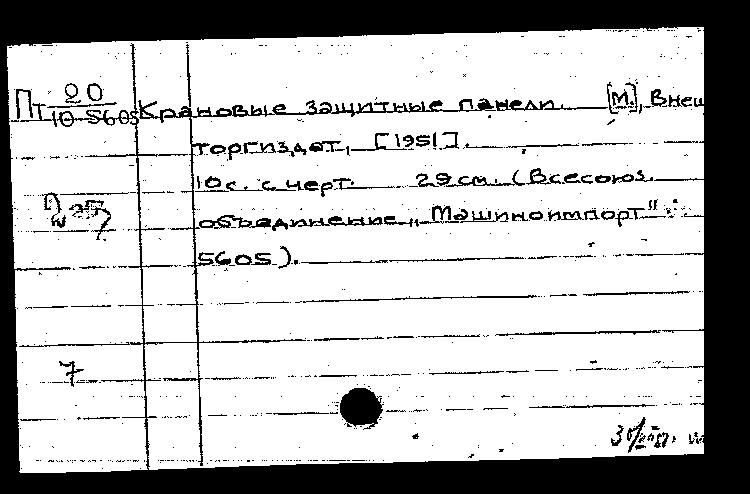 Пт 20
10-5605 Крановые защитные панели. [М.], Внеш
торгиздат, [1951].
10 с. с черт. 29 см. (Всесоюз.
объединение „Машиноимпорт":
5605).
7